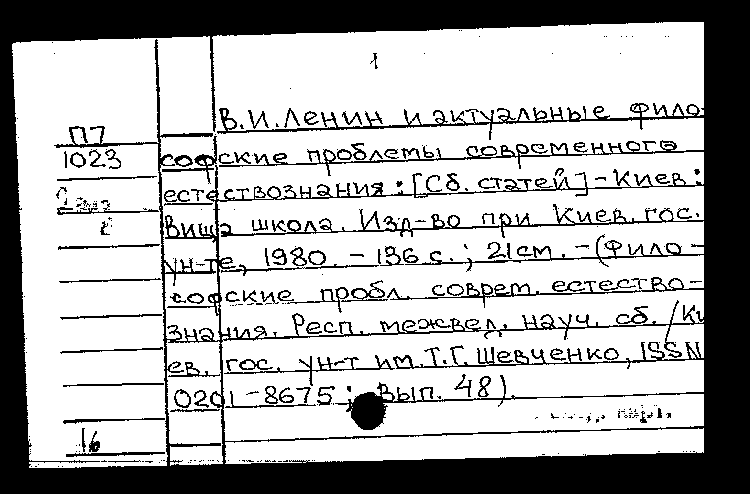 1
В.И. Ленин и актуальные фило-
П7
1023 софские проблемы современного
естествознания: [Сб. статей] - Киев:
Вища школа. Изд-во при Киев. гос.
ун-те, 1980. - 136 с.; 21 см. - (Фило-
софские пробл. соврем. естество-
знания. Респ. межвед. науч. сб. / Ки
ев. гос. ун-т им. Т.Г. Шевченко, ISSN
0201-8675; Вып. 48).
16